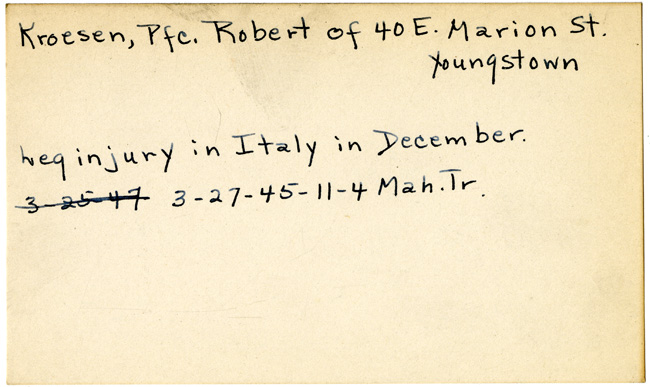 Kroesen, Pfc. Robert of 40 E. Marion St.
Youngstown
Leg injury in Italy in December.
3-25-47 3-27-45-11-4 Mah.Tr.